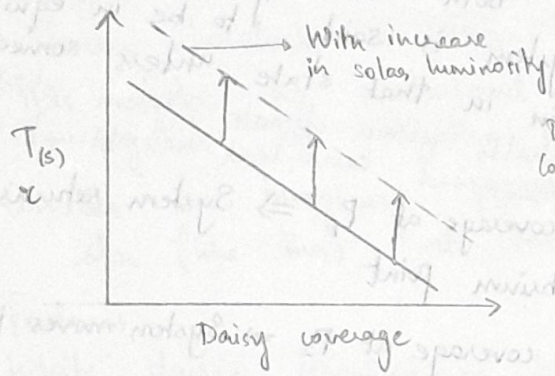 With increase
in solar luminosity
T(s)
Daisy coverage